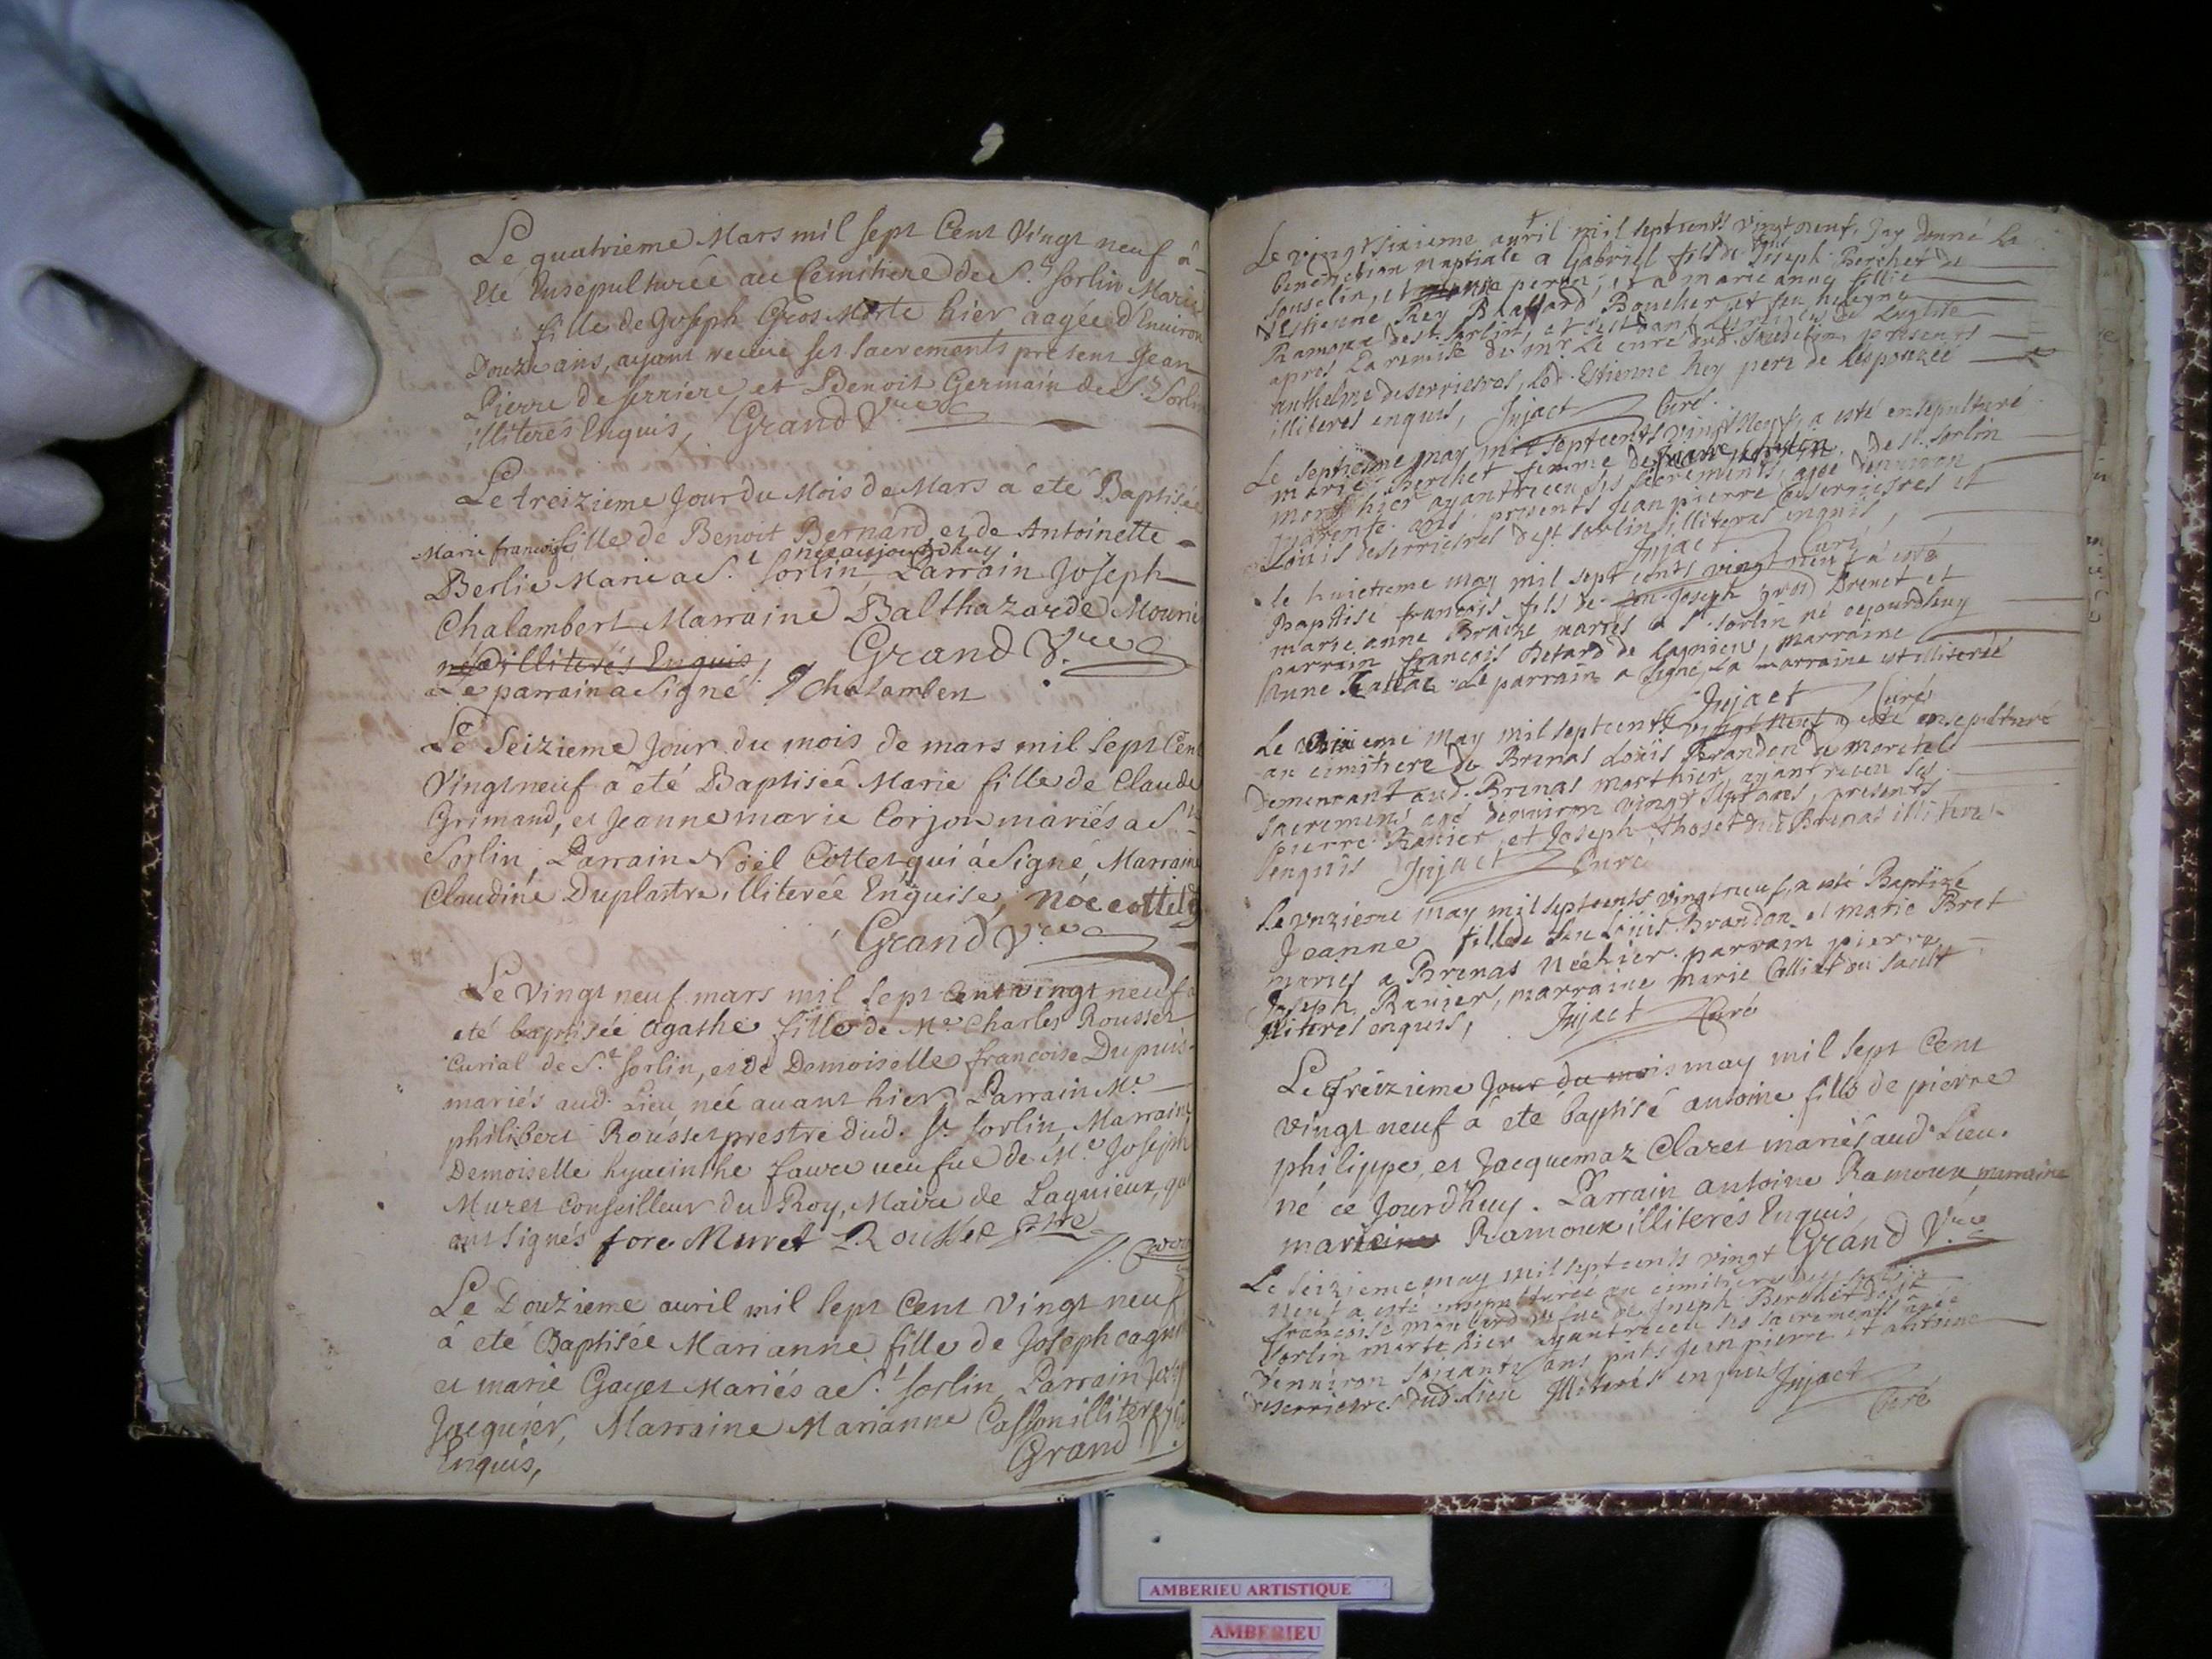 Le quatrieme Mars mil sept Cent Vingt neuf â
Eté Ensepulturée au Cemitiere de St. Sorlin Marie
fille de Joseph Gros Morte hier aagée d'Environ
Douze ans, ayant receüe ses sacrements present Jean
Pierre de serriere et Benoit Germain de St. Sorlin
illiterés Enquis, Grand Vre
Le treizieme Jour du Mois de Mars â été Baptisée
Marie francoise fille de Benoit Bernard et de Antoinette
née aujourdhuy
Berlie Marie a St. Sorlin Parrain Joseph
Chalambert Marraine Balthazarde Mourie
illiterés Enquis, Grand Vre
Le parrain a signé J Chalambert
Le Seizieme Jour du mois de mars mil sept Cent
Vingt neuf â été Baptisée Marie fille de Claude
Grimand, et Jeanne marie Corjon mariés a St
Sorlin, Parrain Noël Cottet qui â signé, Marraine
Claudine Duplastre illiterée Enquise, noe cottet
Grand Vre
Le Vingt neuf mars mil sept Cent vingt neuf a
eté baptisée agathe fille de Me Charles Rousset
Curial de St. Sorlin, et de Demoiselle francoise Dupuis
mariés aud. Lieu née avant hier, Parrain Me
philibert Rousset prestre dud. St Sorlin Marraine
Demoiselle hyacinthe faure veufue de Me Joseph
Muret Conseiller du Roy, Maire de Lagnieux, qui
ont signés fore Muret Rousset ptre
Le Douzieme auril mil sept Cent Vingt neuf
â eté Baptisée Marianne fille de Joseph
et marie Gayet Mariés a St. Sorlin Parrain
Jacquier, Marraine Marianne Casson illiterés
Enquis, Grand V.
Le vingt sixieme auril mil septcents vingt neuf, Jay donné la
benediction nuptiale a Gabriel fils de Joseph Berchet de
Souselin, et perdu, et a marie anne fillie
d'Estienne Rey Boucher et feu
Ramoxe de st. Sorlin, et
apres la remise de mr Le curé dud. presents
anthelme deserrieres, led. Estienne Rey pere de lespouzée
illiteres enquis, Injact Curé.
Le septieme may mil septcents vingt Neuf, a esté ensepulturé
marie Berchet femme de de st. Sorlin
mort hier ayant receu ses sacrements, agé denviron
quarente ans, presents Jean pierre deserrieres et
Louis deserrieres de st Sorlin illiteres enquis,
Injact Curé
le huictieme may mil sept cents vingt neuf a esté
Baptisé francois fils de Joseph gros Drenet et
marie anne Braize mariés a st. Sorlin né cejourdhuy
parrain francois Betard de Lagnieu, marraine
Anne Le parrain a signé, La marraine est illiterée
Injact Curé
Le may mil septcents vingt Neuf a esté ensepulturé
au cimitiere de Brenas Loüis Brandon de
Demeurant aud. Brenas mort hier, ayant receu ses
sacremens agé denviron vingt sept ans, presents
pierre Ranier, et Joseph Thoset dud Brenas illiteres
enquis Injact Curé
Le unzieme may mil septcents vingt neuf, a esté Baptizé
Jeanne fille de feu Loüis Brandon et marie Bret
mariés a Brenas Née hier. parrain pierre
Joseph Ranier, marraine marie Calliat du Sault
illiteres enquis, Injact Curé
Le treizieme Jour du mois may mil sept Cent
vingt neuf â eté baptisé antoine fills de pierre
philippe, et Jacquemaz Claret mariés aud. Lieu.
né ce Jourdhuy. Parrain antoine Ramoux marraine
marie Ramoux illiterés Enquis,
Grand Vre
Le seizieme may mil septcents vingt
Neuf a esté ensepulturée au cimitiere de st Sorlin
francoise de Joseph Berchet de st
Sorlin morte hier ayant receu ses sacrements agée
denviron soixante ans, pnts Jean pierre et antoine
deserrieres dud Lieu Illiterés enquis Injact
Curé
AMBERIEU ARTISTIQUE
AMBERIEU